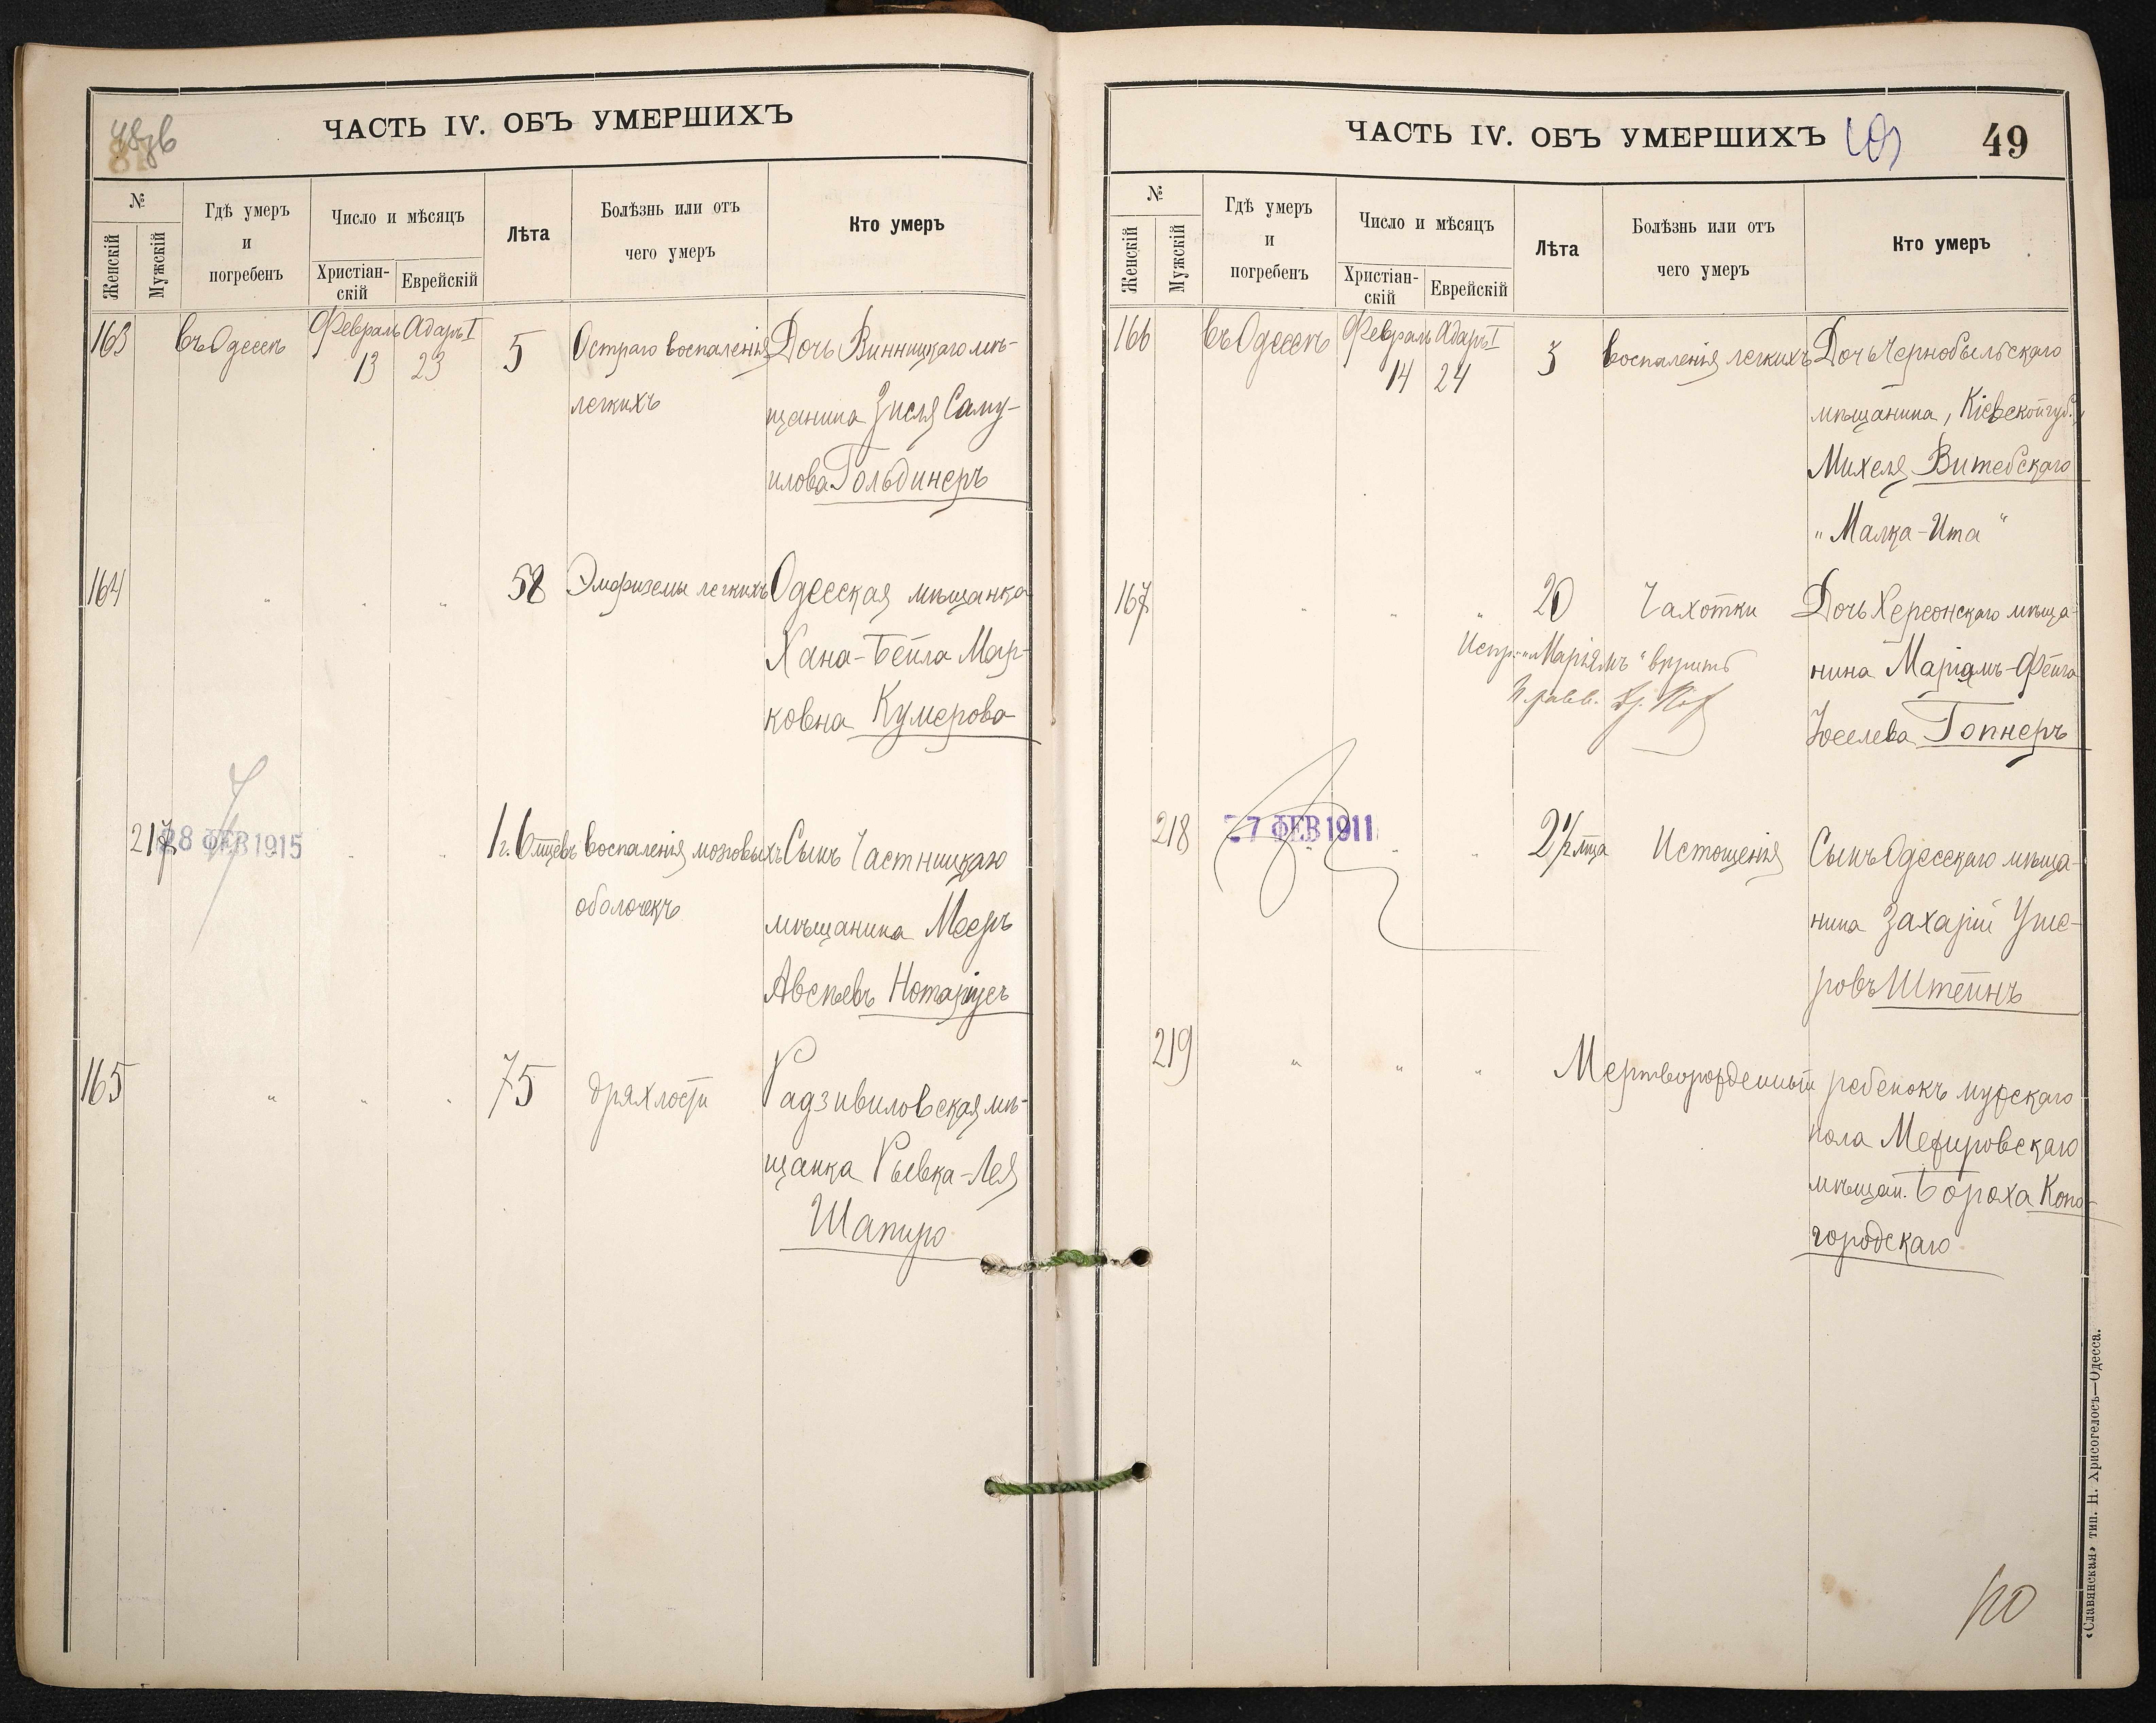 ЧАСТЬ IV. ОБЪ УМЕРШИХЪ
№
Женскій
Мужскій
Гдѣ умеръ
и
погребенъ
Число и мѣсяцъ
Христіан-
скій
Еврейскій
Лѣта
Болѣзнь или отъ
чего умеръ
Кто умеръ
163 въ Одессѣ Февраль Адаръ I 5 Остраго воспаленія Дочь Винницкаго мѣ-
13 23 легкихъ щанина Зисля Саму-
илова Гольдинеръ
164 " " " 58 Эмфиземы легкихъ Одесская мѣщанка
Хана-Бейла Мар-
ковна Кумерова
217 28 ФЕВ 1915 " " 1 г. 6 мцевъ воспаленія мозговыхъ Сынъ Частницкаго
оболочекъ мѣщанина Мееръ
Авсѣевъ Нотаріусъ
165 " " " 75 дряхлости Радзивиловская мѣ-
щанка Рывка-Лея
Шапиро
ЧАСТЬ IV. ОБЪ УМЕРШИХЪ 49
№
Женскій
Мужскій
Гдѣ умеръ
и
погребенъ
Число и мѣсяцъ
Христіан-
скій
Еврейскій
Лѣта
Болѣзнь или отъ
чего умеръ
Кто умеръ
166 въ Одессѣ Февраль Адаръ I 3 воспаленія легкихъ Дочь Чернобыльскаго
14 24 мѣщанина, Кіевской губ.,
Михеля Витебскаго
"Малка-Ита"
167 " " " 20 Чахотки Дочь Херсонскаго мѣща-
Испр. "Маріямъ" вѣрить нина Маріамъ-Фейга
Іоселева Гопнеръ
218 27 ФЕВ 1911 " " 2 1/2 мца Истощенія Сынъ Одесскаго мѣща-
нина Захарій Уше-
ровъ Штейнъ
219 " " " Мертворожденный ребенокъ мужскаго
пола Межировскаго
мѣщан. Бороха Копо-
городскаго
«Славянская» тип. Н. Хрисогелосъ—Одесса.